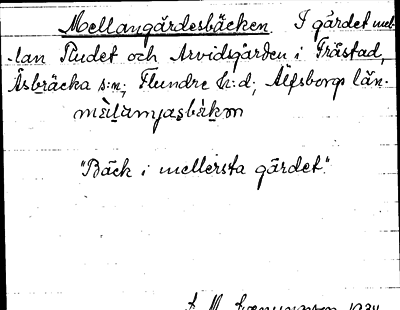 Mellangärdesbäcken. I gärdet mel-
lan Fludet och Arvidsgården i Fråstad,
Åsbräcka s:n, Flundre h:d, Älfsborgs län.
"Bäck i mellersta gärdet."
1934